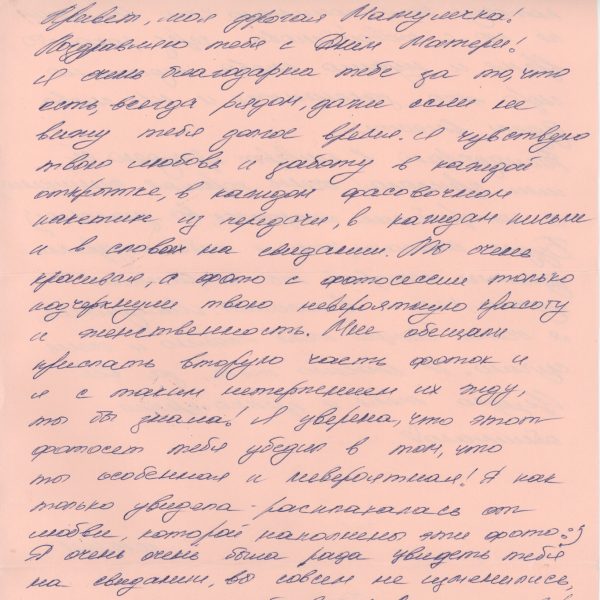 Привет, моя дорогая Мамулечка!
Поздравляю тебя с Днём Матери!
Я очень благодарна тебе за то, что
есть, всегда рядом, даже если не
вижу тебя долгое время. Я чувствую
твою любовь и заботу в каждой
открытке, в каждом фасовочном
пакетике из передачи, в каждом письме
и в словах на свидании. Ты очень
красивая, а фото с фотосессии только
подчеркнули твою невероятную красоту
и женственность. Мне обещали
прислать вторую часть фоток и
я с таким нетерпением их жду,
ты бы знала! Я уверена, что этот
фотосет тебя убедил в том, что
ты особенная и невероятная! Я как
только увидела - расплакалась от
любви, которой наполнены эти фото :)
Я очень очень была рада увидеть тебя
на свидании, вы совсем не изменились,